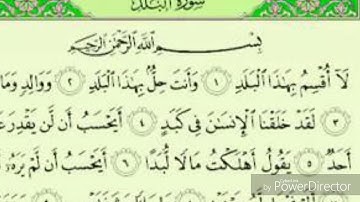 سُورَةُ الْبَلَد
بِسْمِ اللَّهِ الرَّحْمَٰنِ الرَّحِيمِ
لَآ أُقْسِمُ بِهَٰذَا الْبَلَدِ ١ وَأَنتَ حِلٌّ بِهَٰذَا الْبَلَدِ ٢ وَوَالِدٍ وَمَا
٣ لَقَدْ خَلَقْنَا الْإِنسَٰنَ فِي كَبَدٍ ٤ أَيَحْسَبُ أَن لَّن يَقْدِرَ عَ
أَحَدٌ ٥ يَقُولُ أَهْلَكْتُ مَالًا لُّبَدًا ٦ أَيَحْسَبُ أَن لَّمْ يَرَهُۥٓ أَ
by PowerDirector